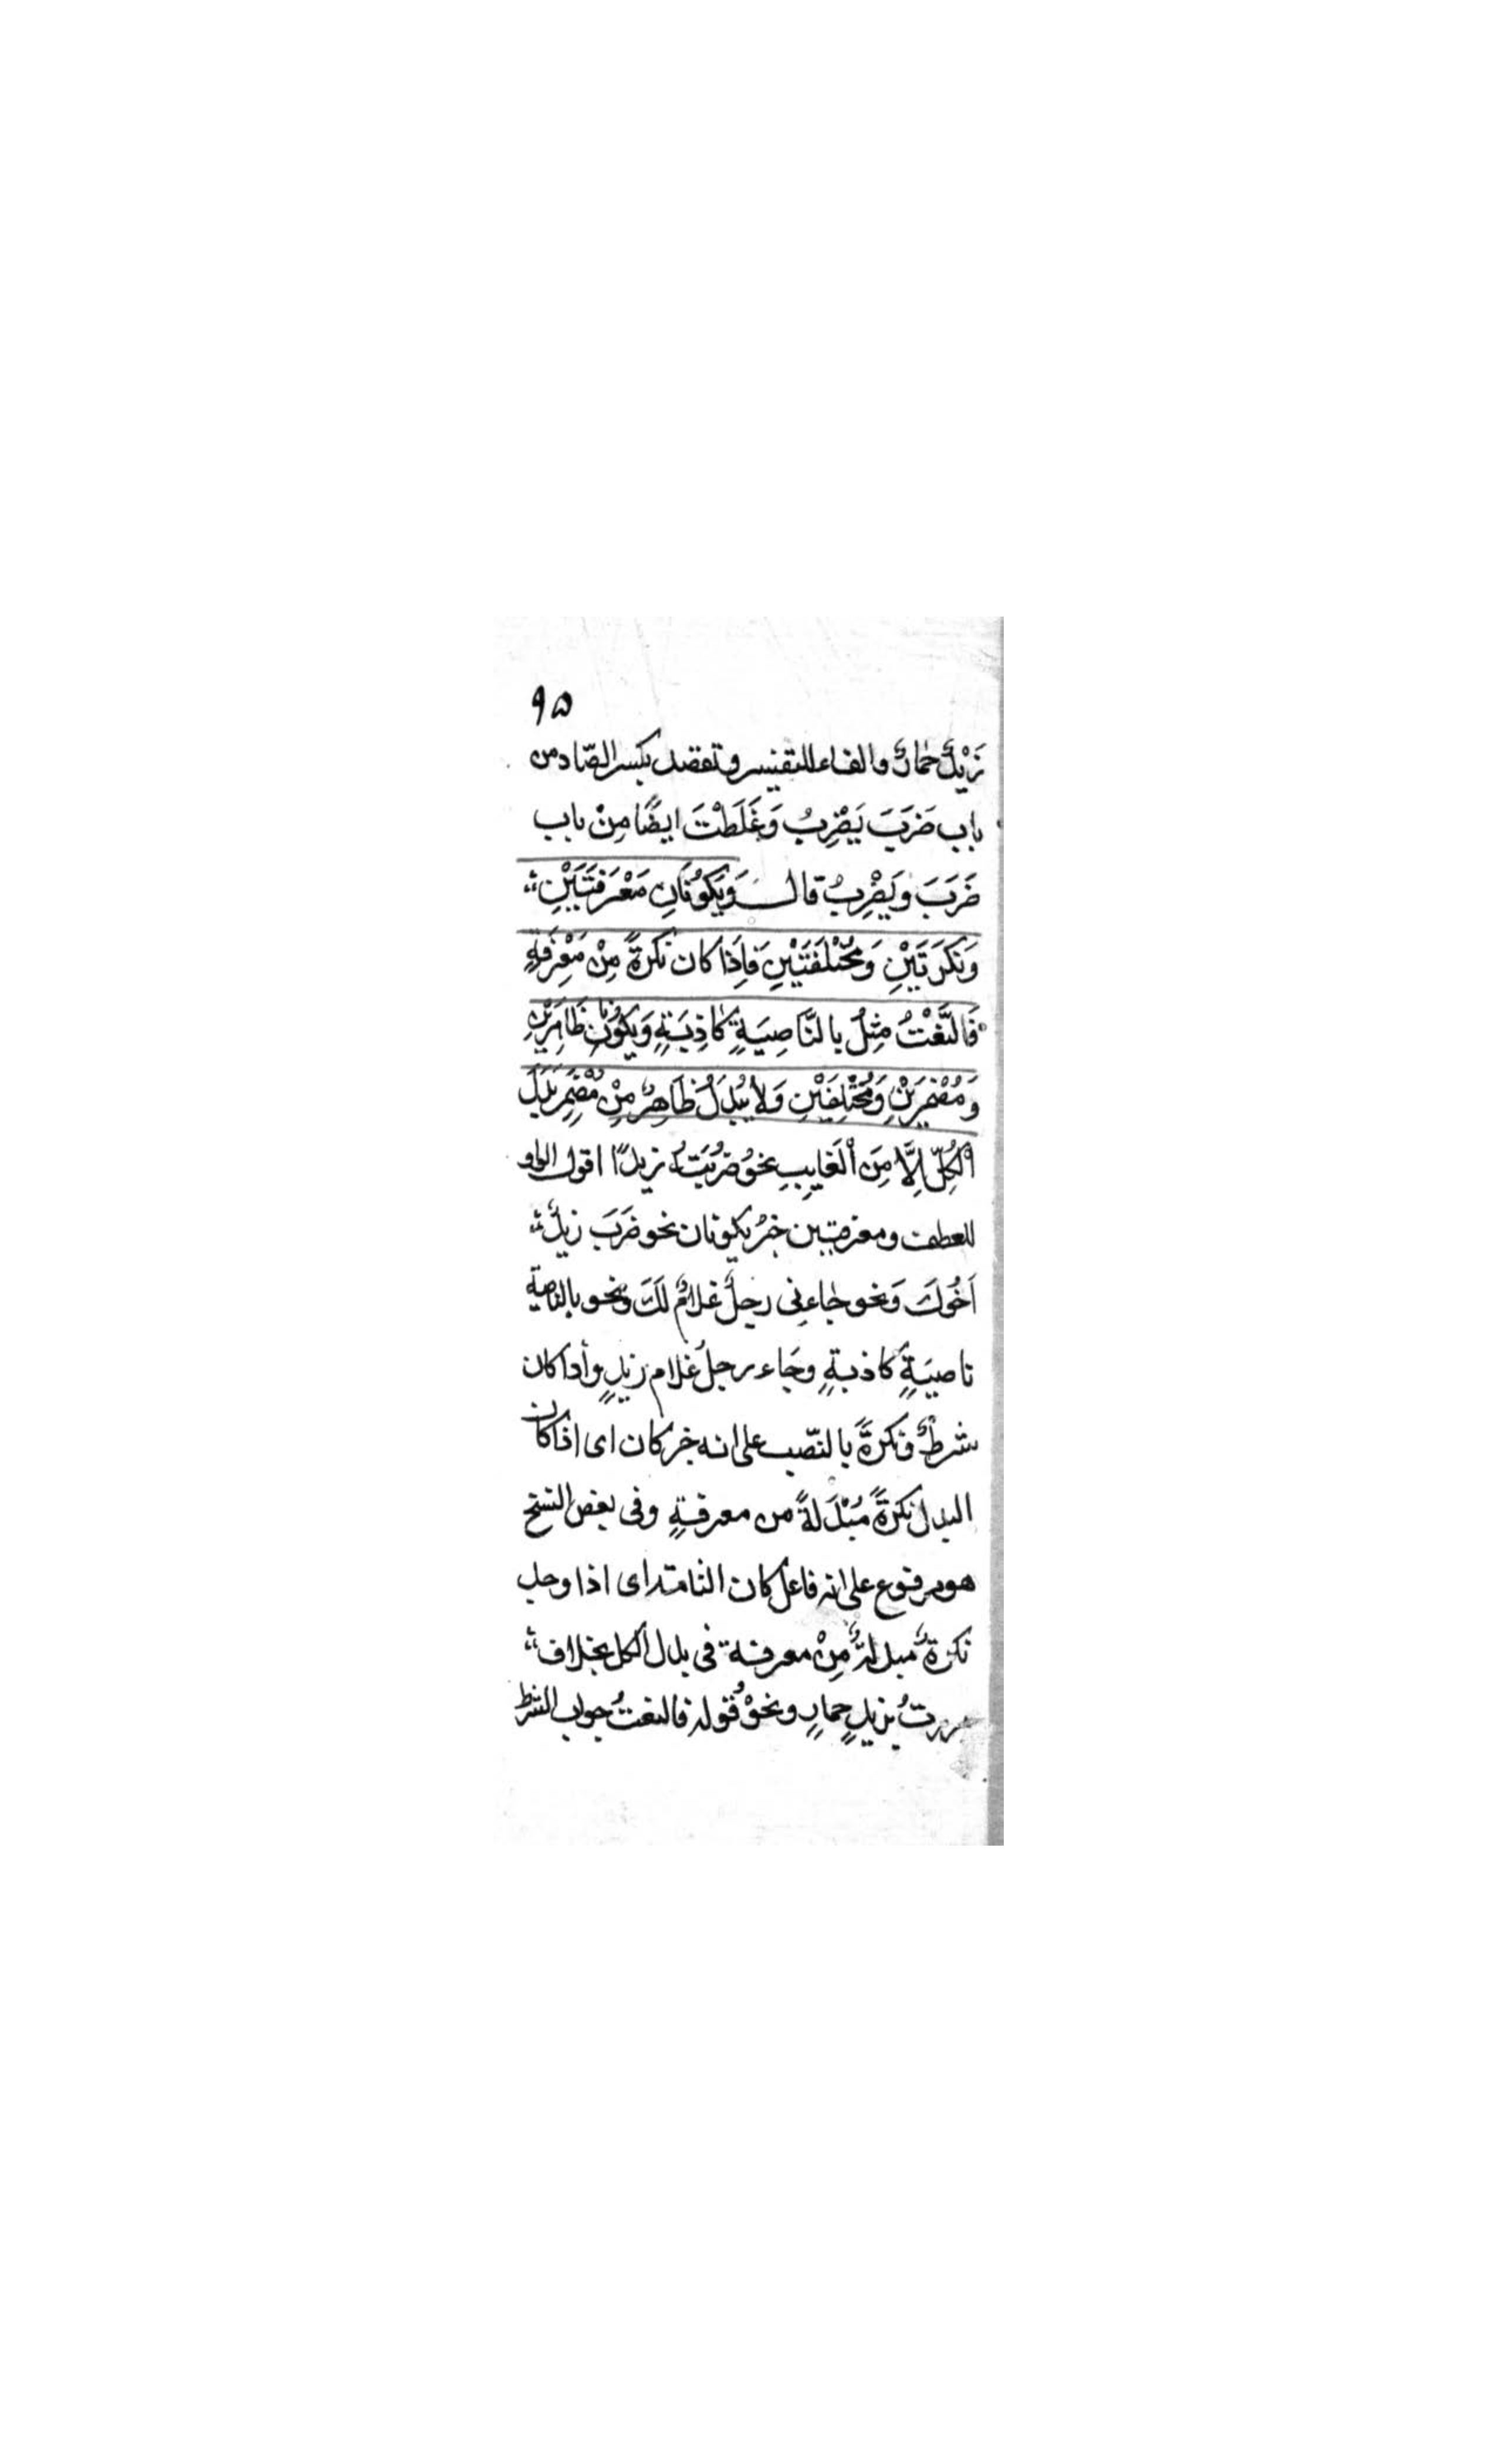 ٩۵
زَيْدٌ حمَارٌ والفاء للتفسير وتقصد بكسر الصّاد من
باب ضَرَبَ يَضْرِبُ وَغَلَطْتَ ايضًا مِنْ باب
ضَرَبَ وَيَضْرِبُ قال وَيَكوُنَانِ مَعْرَفَتَيْنِ
وَنَكرَتَيْنِ وَمُخْتَلَفَتَيْنِ فَاِذَا كان نَكرَةً مِنْ مَعْرِفَةٍ
فَالنَّعْتُ مِثِلُ بالنَّاصِيَةٍ كاَذِبَةٍ وَيَكوُنَانِ ظَاهِرَيْنِ
وَمُضْمَرَيْنِ وَمُخْتَلِفَيْنِ وَلاَ يُبْدَلُ ظَاهِرٌ مِنْ مُضْمَرٍ بَدَلَ
اْلكُلِّ اِلاَّ مِنَ اْلغَايِبِ نحوُ ضَرَبْتُهُ زيدًا اقول الواو
للعطف ومعرفتين خبرُ يكونان نحو ضَرَبَ زيدٌ
اَخُوكَ وَنحو جاءنى رجلٌ غلامٌ لَكَ ونحو بالناصية
ناصِيَةٍ كاذبةٍ وجَاء رجلُ غلام زيدٍ وأذا كان
شرطٌ ونَكرَةً بالنصّب على انه خبر كان اى اذا كان
البدل نَكرَةً مُبْدَلَةً من معرفةٍ وفى بعض النسخ
هو مرفوع على انه فاعل كان التامة اى اذا وجد
نكرةٌ مبدلةٌ مِنْ معرفة فى بدل الكل بخلاف
مررتُ بزيدٍ حمارٍ ونحوُ قوله فالنعتُ جواب الشرط